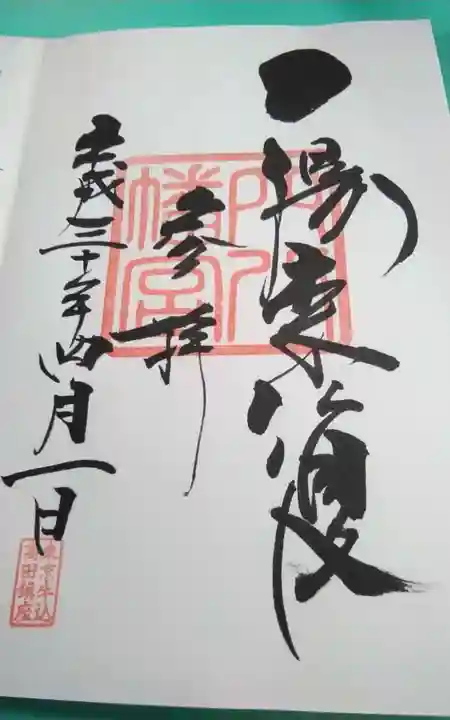 一陽来復
参拝
穴八幡宮
平成三十年四月一日
東京牛込
高田鎮座